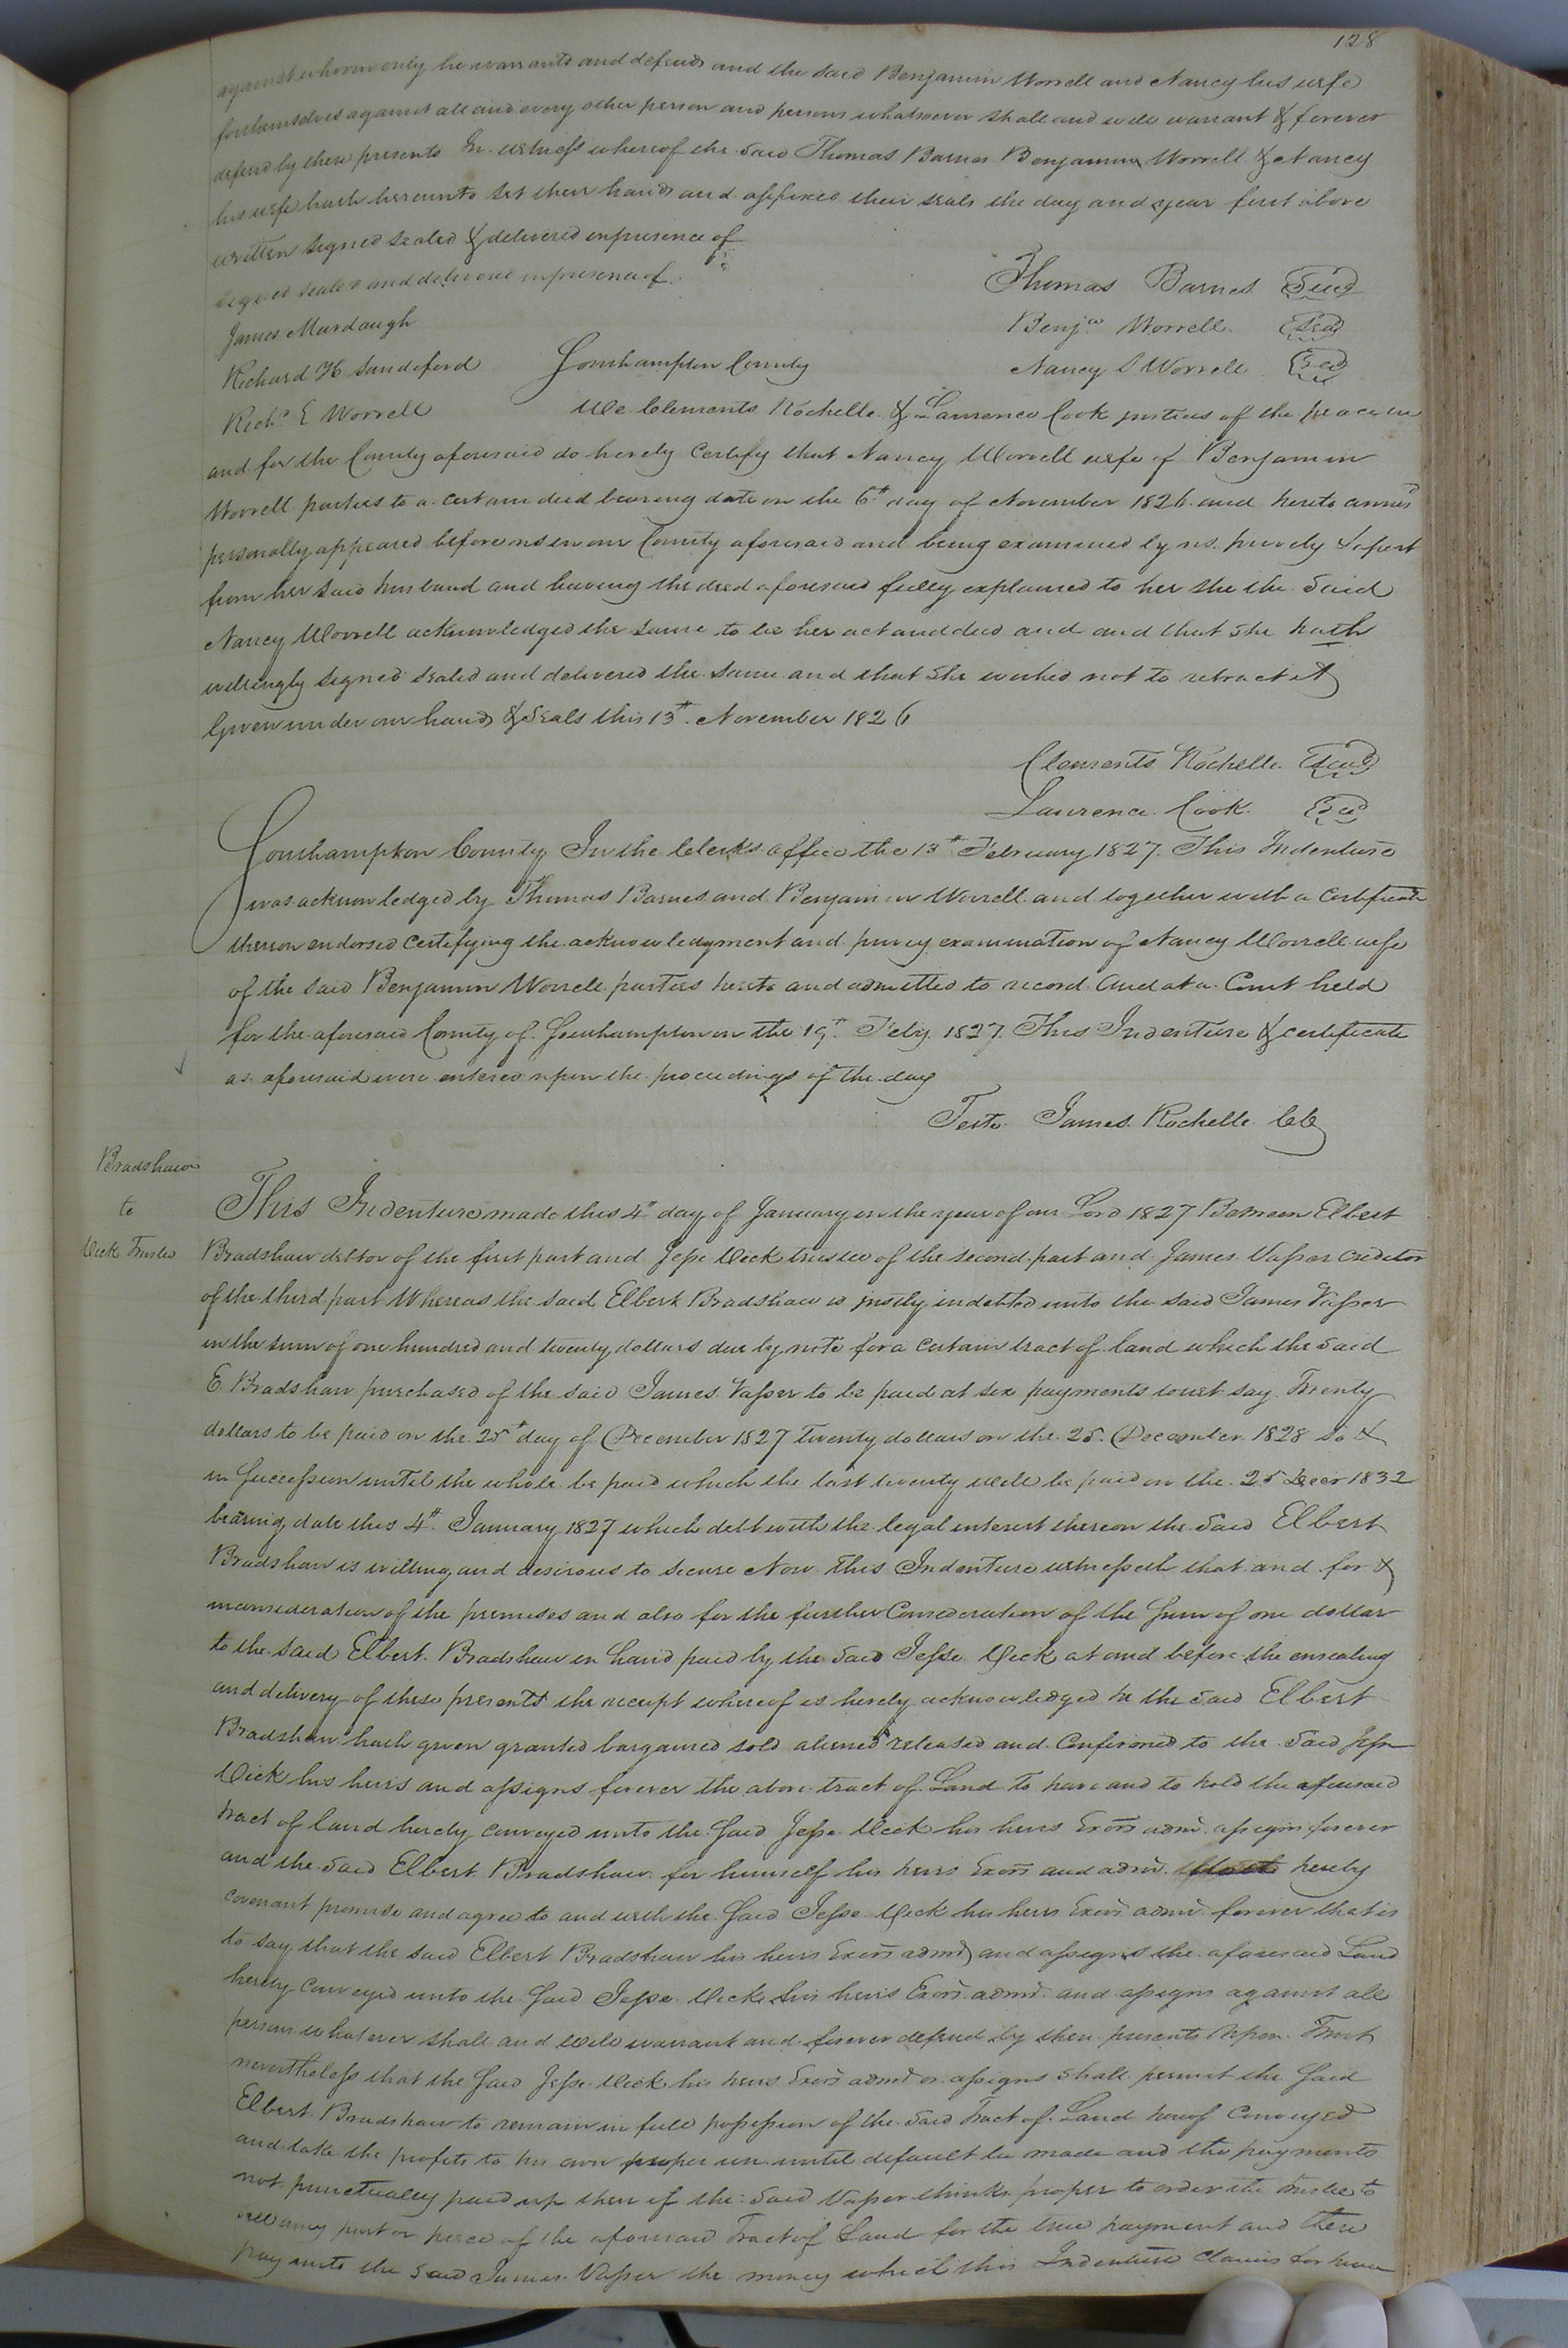 128
against whom only he warrants and defends and the said Benjamin Worrell and Nancy his wife
for themselves against all and every other person and persons whatsoever shall and will warrant & forever
defend by these presents In witness whereof the said Thomas Barnes Benjamin Worrell & Nancy
his wife hath hereunto set their hands and affixed their seals the day and year first above
written signed sealed & delivered in presence of
signed sealed and delivered in presence of
Thomas Barnes Seal
James Murdaugh
Benja Worrell Seal
Richard H Sandeford Southampton County Nancy S Worrell Seal
Richd E Worrell We Clements Rochelle & Laurence Cook justices of the peace in
and for the County aforesaid do hereby Certify that Nancy Worrell wife of Benjamin
Worrell parties to a certain deed bearing date on the 6th day of November 1826 and hereto annexd
personally appeared before us in our County aforesaid and being examined by us privily & apart
from her said husband and having the deed aforesaid fully explained to her she the said
Nancy Worrell acknowledged the same to be her act and deed and and that she hath
willingly signed sealed and delivered the same and that she wished not to retract it
Given under our hands & seals this 13th November 1826
Clements Rochelle Seal
Laurence Cook Seal
Southampton County In the Clerks office the 13th February 1827. This Indenture
was acknowledged by Thomas Barnes and Benjamin Worrell and together with a Certificate
thereon endorsed certifying the acknowledgment and privy examination of Nancy Worrell wife
of the said Benjamin Worrell parties hereto and admitted to record And at a Court held
for the aforesaid County of Southampton on the 19th Feby 1827. This Indenture & certificate
as aforesaid were entered upon the proceedings of the day
Teste James Rochelle CC
Bradshaw
to
Vick Trustee
This Indenture made this 4th day of January in the year of our Lord 1827 Between Elbert
Bradshaw debtor of the first part and Jesse Vick trustee of the second part and James Vasser Creditor
of the third part Whereas the said Elbert Bradshaw is justly indebted unto the said James Vasser
in the sum of one hundred and twenty dollars due by note for a certain tract of land which the said
E. Bradshaw purchased of the said James Vasser to be paid at six payments to wit say Twenty
dollars to be paid on the 25th day of December 1827 Twenty dollars on the 25 December 1828 so &
in Succession until the whole be paid which the last twenty will be paid on the 25 Decr 1832
bearing date this 4th January 1827 which debt with the legal interest thereon the said Elbert
Bradshaw is willing and desirous to secure Now this Indenture witnesseth that and for &
in consideration of the premises and also for the further Consideration of the Sum of one dollar
to the said Elbert Bradshaw in hand paid by the said Jesse Vick at and before the ensealing
and delivery of these presents the receipt whereof is hereby acknowledged he the said Elbert
Bradshaw hath given granted bargained sold aliened released and Confirmed to the said Jesse
Vick his heirs and assigns forever the above tract of Land To have and to hold the aforesaid
tract of land hereby conveyed unto the Said Jesse Vick his heirs Exors admr assigns forever
and the said Elbert Bradshaw for himself his heirs Exors and admr hereby
covenant promise and agree to and with the Said Jesse Vick his heirs Exors admr forever that is
to say that the said Elbert Bradshaw his heirs Exors admr and assigns the aforesaid Land
hereby conveyed unto the Said Jesse Vick his heirs Exors admr and assigns against all
persons whatever shall and will warrant and forever defend by these presents Upon Trust
nevertheless that the Said Jesse Vick his heirs Exors admr or assigns shall permit the Said
Elbert Bradshaw to remain in full possession of the said Tract of Land hereof Conveyed
and take the profits to his own proper use until default be made and the payments
not punctually paid up then if the said Vasser thinks proper to order the trustee to
sell any part or piece of the aforesaid Tract of Land for the true payment and then
pay unto the said James Vasser the money which this Indenture claims for him